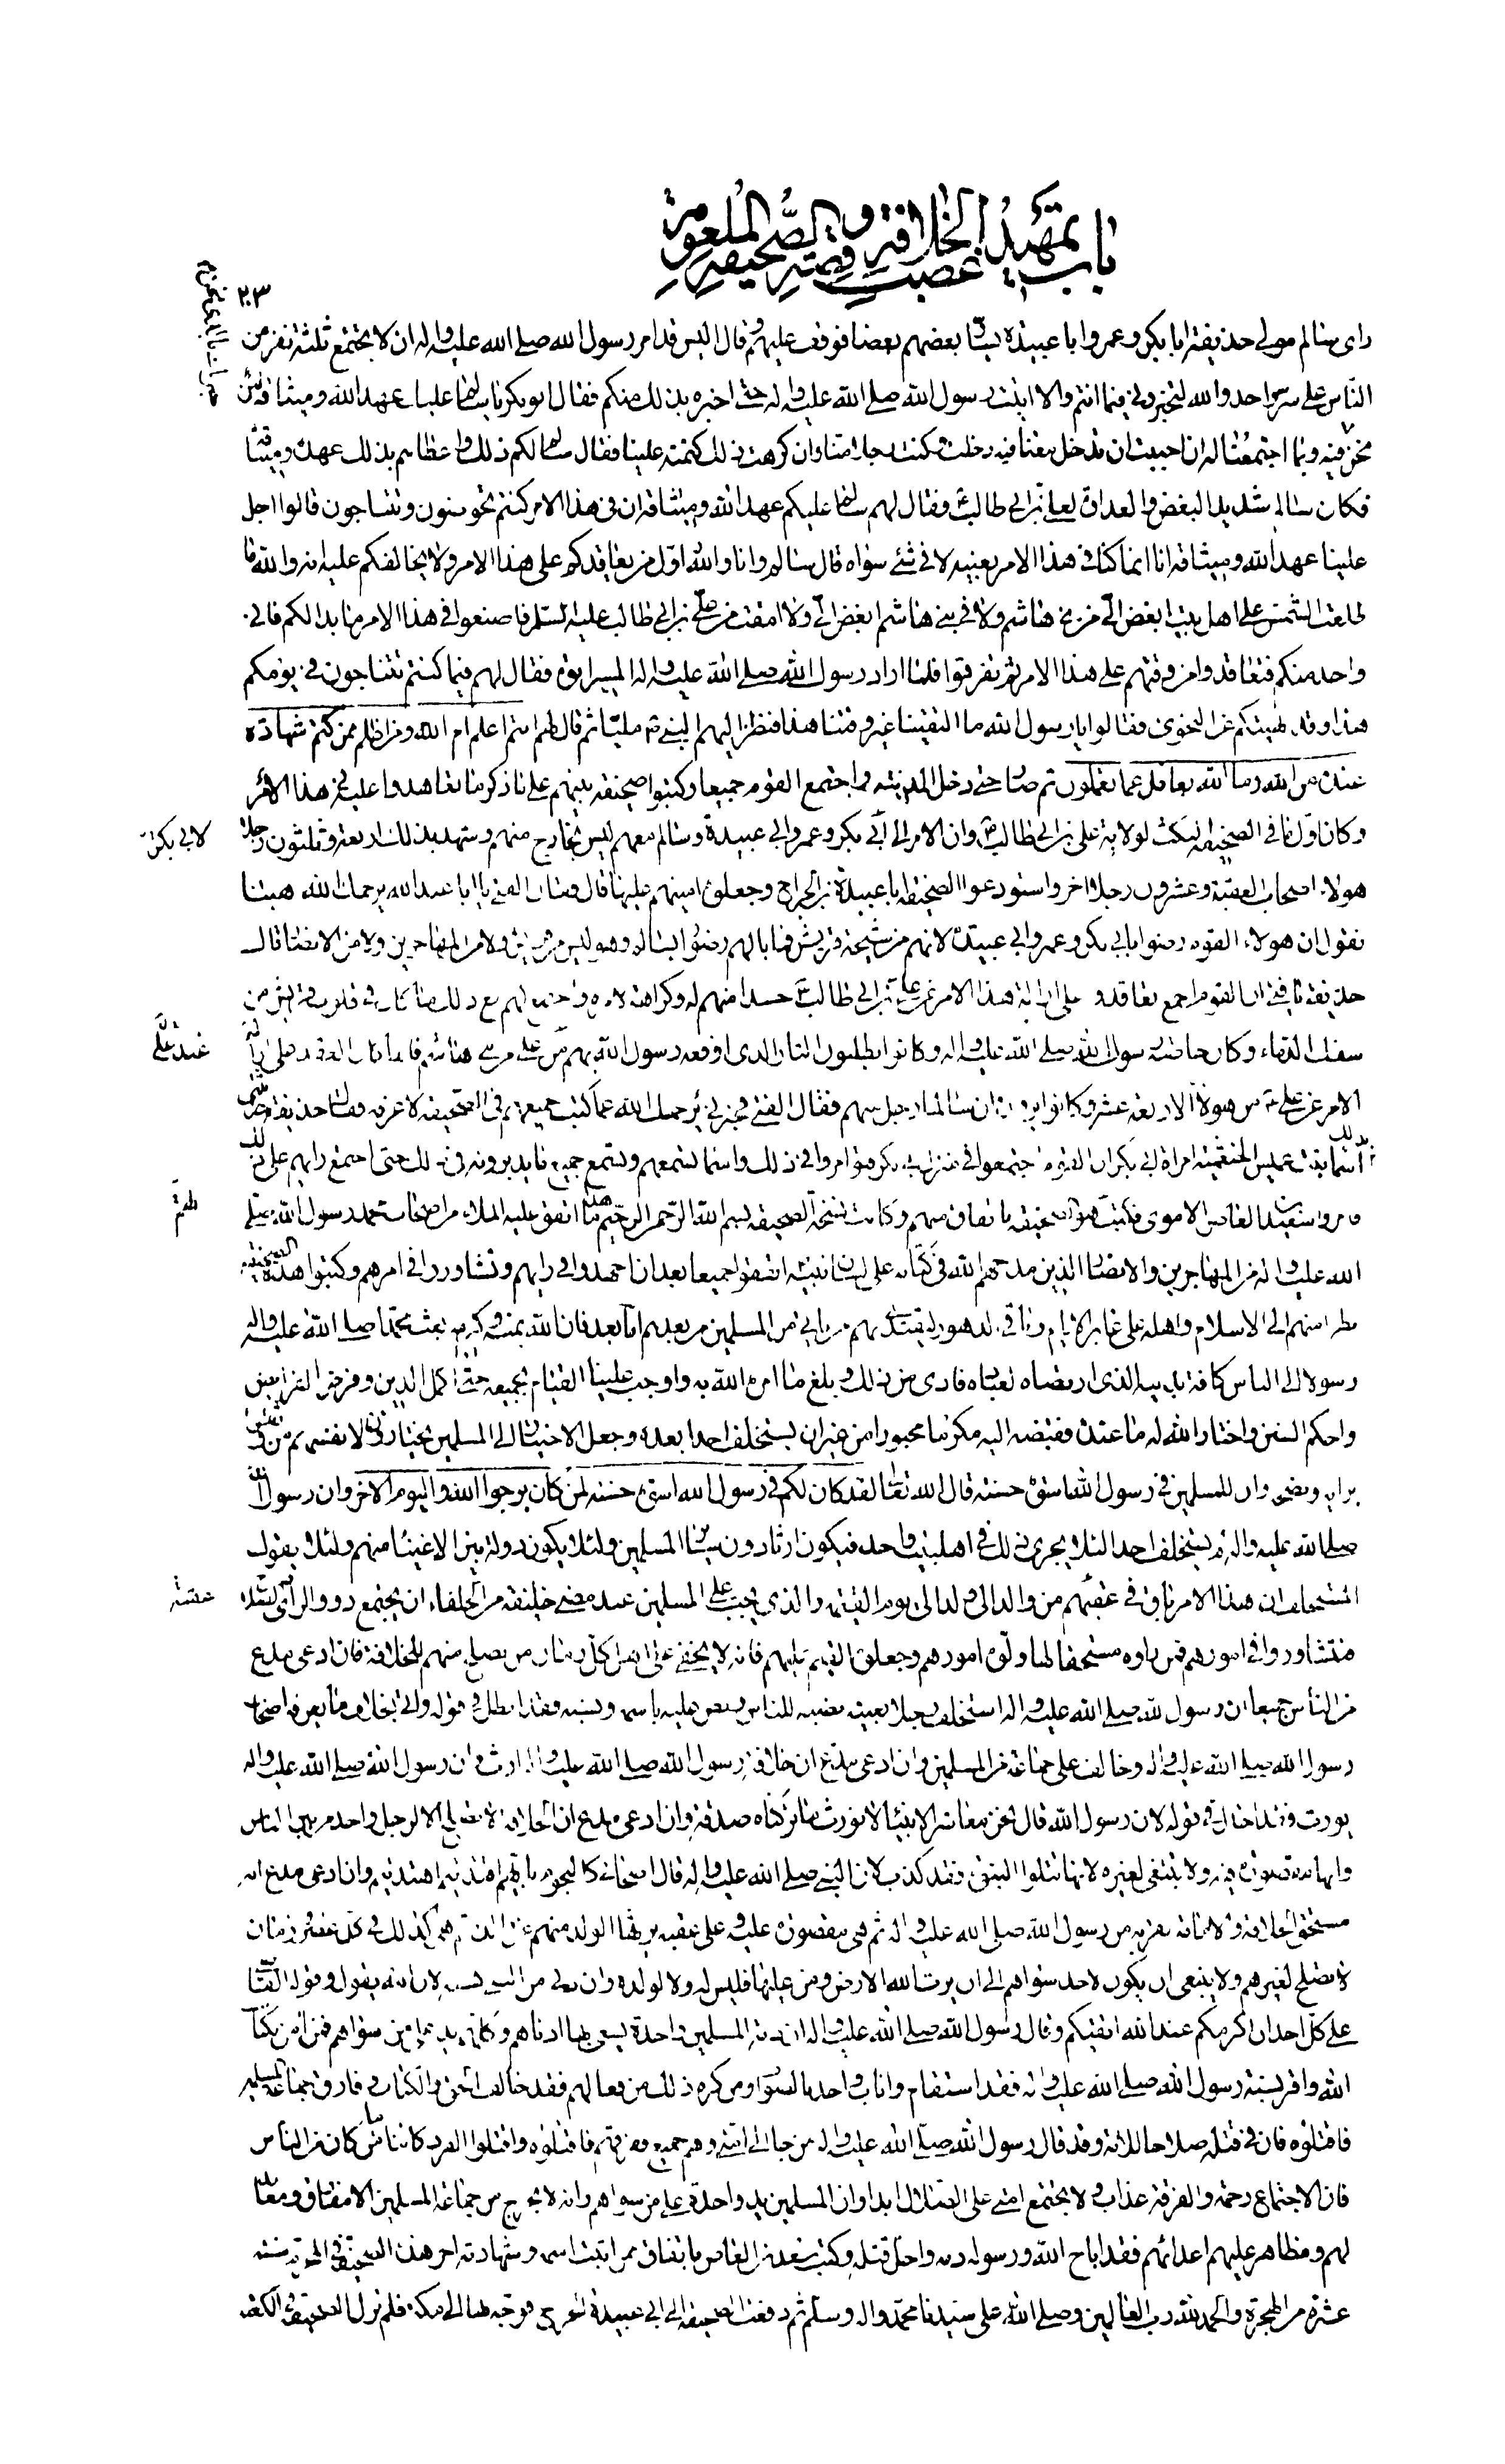 باب تمهيد غصب الخلافة و قصة الصحيفة الملعونة
٢٠٣
راى سالم مولى حذيفة ابا بكر و عمر و ابا عبيدة يسار بعضهم بعضا فوقف عليهم و قال اليس قد امر رسول الله صلى الله عليه و اله ان لا يجتمع ثلثة نفر من
الناس على سر واحد و الله لتخبروني فيما انتم و الا اتيت رسول الله صلى الله عليه و اله حتى اخبره بذلك منكم فقال ابو بكر يا سالم عليك عهد الله و ميثاقه لئن
نحن فيه و بما اجتمعنا له ان احببت ان تدخل معنا فيه دخلت و كنت رجلا منا و ان كرهت ذلك كتمته علينا فقال سالم لكم ذلك و اعطاهم بذلك عهده و ميثاقه
فكان سالم شديد البغض و العداوة لعلي بن ابي طالب ع فقال لهم سالم عليكم عهد الله و ميثاقه ان في هذا الامر كنتم تخوضون و تتناجون قالوا اجل
علينا عهد الله و ميثاقه انا انما كنا في هذا الامر بعينه لا في شئ سواه قال سالم و انا و الله اول من يعاقدكم على هذا الامر و لا يخالفكم عليه انه و الله ما
طلعت الشمس على اهل بيت ابغض الي من بني هاشم و لا في بني هاشم ابغض الي و لا امقت من علي بن ابي طالب عليه السلم فاصنعوا في هذا الامر ما بدا لكم فاني
واحد منكم فتعاقدوا من وقتهم على هذا الامر ثم تفرقوا فلما اراد رسول الله صلى الله عليه و اله المسير اتوه فقال لهم فيما كنتم تتناجون في يومكم
هذا و قد نهيتكم عن النجوى فقالوا يا رسول الله ما التقينا غير وقتنا هذا فنظر اليهم النبي ص مليا ثم قال لهم انتم اعلم ام الله و من اظلم ممن كتم شهادة
عنده من الله و ما الله بغافل عما تعملون ثم سار حتى دخل المدينة و اجتمع القوم جميعا و كتبوا صحيفة بينهم على ما ذكر ما تعاهدوا عليه في هذا الامر
و كان اول ما في الصحيفة النكث لولاية علي بن ابي طالب ع و ان الامر الى ابي بكر و عمر و ابي عبيدة و سالم معهم ليس بخارج منهم و شهد بذلك اربعة و ثلثون رجلا
هولاء اصحاب العقبة و عشرون رجلا اخر و استودعوا الصحيفة ابا عبيدة بن الجراح و جعلوه امينهم عليها قال فقال الفتى يا ابا عبد الله يرحمك الله هبنا
نقول ان هولاء القوم رضوا بابي بكر و عمر و ابي عبيدة لانهم من مشيخة قريش فما بالهم رضوا بسالم و هو ليس من قريش و لا من المهاجرين و لا من الانصار قال
حذيفة يا فتى ان القوم اجمع تعاقدوا على ازالة هذا الامر عن علي بن ابي طالب ع حسدا منهم له و كراهة لامره و اجتمع لهم مع ذلك ما كان في قلوب قريش من
سفك الدماء و كان خاصة رسول الله صلى الله عليه و اله و كانوا يطلبون الثار الذي اوقعه رسول الله بهم من علي من بني هاشم فانما كان العقد على ازالة
الامر عن علي ع من هولاء الاربعة عشر و كانوا يرون ان سالما رجل منهم فقال الفتى فخبرني يرحمك الله عما كتب جميعهم في الصحيفة لاعرفه فقال حذيفة حدثتني
بذلك اسماء بنت عميس الخثعمية امراة ابي بكر ان القوم اجتمعوا في منزل ابي بكر فتوامروا في ذلك و اسماء تسمعهم و تسمع جميع ما يدبرونه في ذلك حتى اجتمع رايهم على ذلك
فامروا سعيد بن العاص الاموي فكتب هو الصحيفة باتفاق منهم و كانت نسخة الصحيفة بسم الله الرحمن الرحيم هذا ما اتفق عليه الملاء من اصحاب محمد رسول الله صلى
الله عليه و اله من المهاجرين و الانصار الذين مدحهم الله في كتابه على لسان نبيه اتفقوا جميعا بعد ان اجهدوا في رايهم و تشاوروا في امرهم و كتبوا هذه الصحيفة
نظرا منهم الى الاسلام و اهله على غابر الايام و باقي الدهور ليقتدي بهم من ياتي من المسلمين من بعدهم اما بعد فان الله بمنه و كرمه بعث محمدا صلى الله عليه و اله
رسولا الى الناس كافة بدينه الذي ارتضاه لعباده فادى من ذلك و بلغ ما امره الله به و اوجب علينا القيام بجميعه حتى اكمل الدين و فرض الفرايض
و احكم السنن و اختار الله له ما عنده فقبضه اليه مكرما محبورا من غير ان يستخلف احدا بعده و جعل الاختيار الى المسلمين يختارون لانفسهم من وثقوا
برايه و نصحه و ان للمسلمين في رسول الله اسوة حسنة قال الله تعالى لقد كان لكم في رسول الله اسوة حسنة لمن كان يرجوا الله و اليوم الاخر و ان رسول الله
صلى الله عليه و اله لم يستخلف احدا لئلا يجري ذلك في اهل بيت واحد فيكون ارثا دون ساير المسلمين و لئلا يكون دولة بين الاغنياء منهم و لئلا يقول
المستخلف ان هذا الامر باق في عقبه من والد الى ولد الى يوم القيمة و الذي يجب على المسلمين عند مضي خليفة من الخلفاء ان يجتمع ذوو الراي و الصلاح
فيتشاوروا في امورهم فمن راوه مستحقا لها ولوه امورهم و جعلوه القيم عليهم فانه لا يخفى على اهل كل زمان من يصلح منهم للخلافة فان ادعى مدع
من الناس جميعا ان رسول الله صلى الله عليه و اله استخلف رجلا بعينه نصبه للناس و نص عليه باسمه و نسبه فقد ابطل في قوله و اتى بخلاف ما يعرفه اصحاب
رسول الله صلى الله عليه و اله و خالف على جماعة من المسلمين و ان ادعى مدع ان خلافة رسول الله صلى الله عليه و اله ارث و ان رسول الله صلى الله عليه و اله
يورث فقد احال في قوله لان رسول الله قال نحن معاشر الانبياء لا نورث ما تركناه صدقة و ان ادعى مدع ان الخلافة لا تصلح الا لرجل واحد من بين الناس
و انها مقصورة فيه و لا ينبغي لغيره لانها تتلوا النبوة فقد كذب لان النبي صلى الله عليه و اله قال اصحابي كالنجوم بايهم اقتديتم اهتديتم و ان ادعى مدع انه
مستحق الخلافة و الامامة بقربه من رسول الله صلى الله عليه و اله ثم هي مقصورة عليه و على عقبه يرثها الولد منهم عن والده ثم هي كذلك في كل عصر و زمان
لا تصلح لغيرهم و لا ينبغي ان يكون لاحد سواهم الى ان يرث الله الارض و من عليها فليس له و لا لولده و ان دنى من النبي نسبه لان الله يقول و قوله القاضي
على كل احد ان اكرمكم عند الله اتقيكم و قال رسول الله صلى الله عليه و اله ان ذمة المسلمين واحدة يسعى بها ادناهم و كلهم يد على من سواهم فمن امن بكتاب
الله و اقر بسنة رسول الله صلى الله عليه و اله فقد استقام و اناب و اخذ بالصواب و من كره ذلك من فعالهم فقد خالف الحق و الكتاب و فارق جماعة المسلمين
فاقتلوه فان في قتله صلاحا للامة و قد قال رسول الله صلى الله عليه و اله من جاء الى امتي و هم جميع ففرقهم فاقتلوه و اقتلوا الفرد كائنا من كان من الناس
فان الاجتماع رحمة و الفرقة عذاب و لا يجتمع امتي على الضلال ابدا و ان المسلمين يد واحدة على من سواهم و انه لا يخرج من جماعة المسلمين الا مفارق و معاند
لهم و مظاهر عليهم اعدائهم فقد اباح الله و رسوله دمه و احل قتله و كتب سعيد بن العاص باتفاق ممن اثبت اسمه و شهادته اخر هذه الصحيفة في المحرم سنة
عشرة من الهجرة و الحمد لله رب العالمين و صلى الله على سيدنا محمد و اله و سلم ثم دفعت الصحيفة الى ابي عبيدة الجراح فوجه بها الى مكة فلم تزل الصحيفة في الكعبة